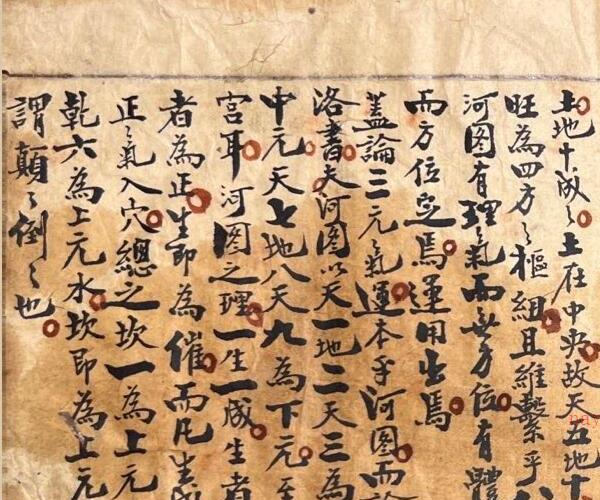 土地十成之土在中央故天五地十
旺為四方之樞紐且維繫乎
河图有理氣而无方位有體
而方位定焉運用出焉
蓋論三元之氣運本乎河图而
洛書夫河图以天一地二天三為
中元天七地八天九為下元至
宮耳河图之理一生一成生者
者為正生即為催而凡生
正之氣入穴總之坎一為上元
乾六為上元水坎即為上元
謂顛之倒之也